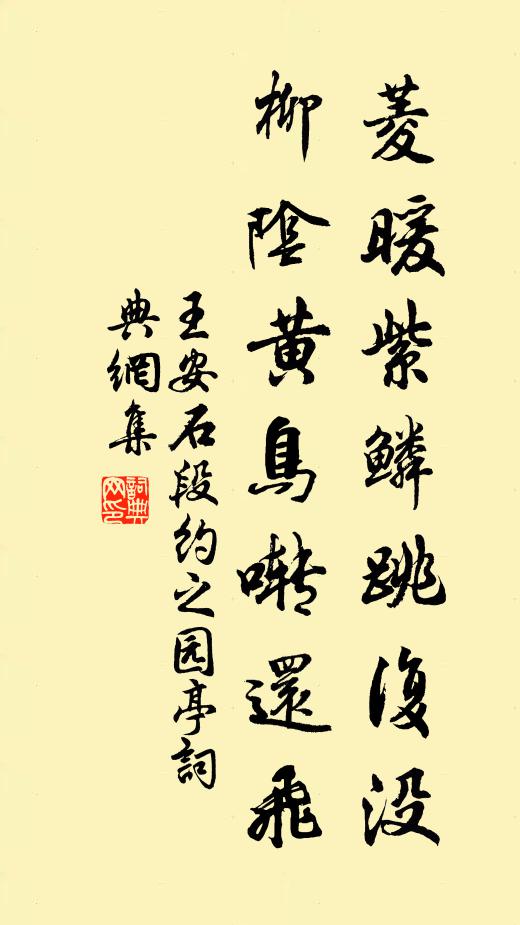 菱暖紫鳞跳復没
柳陰黄鳥啭還飛
王安石段约之园亭詞
典網集
詞典网印